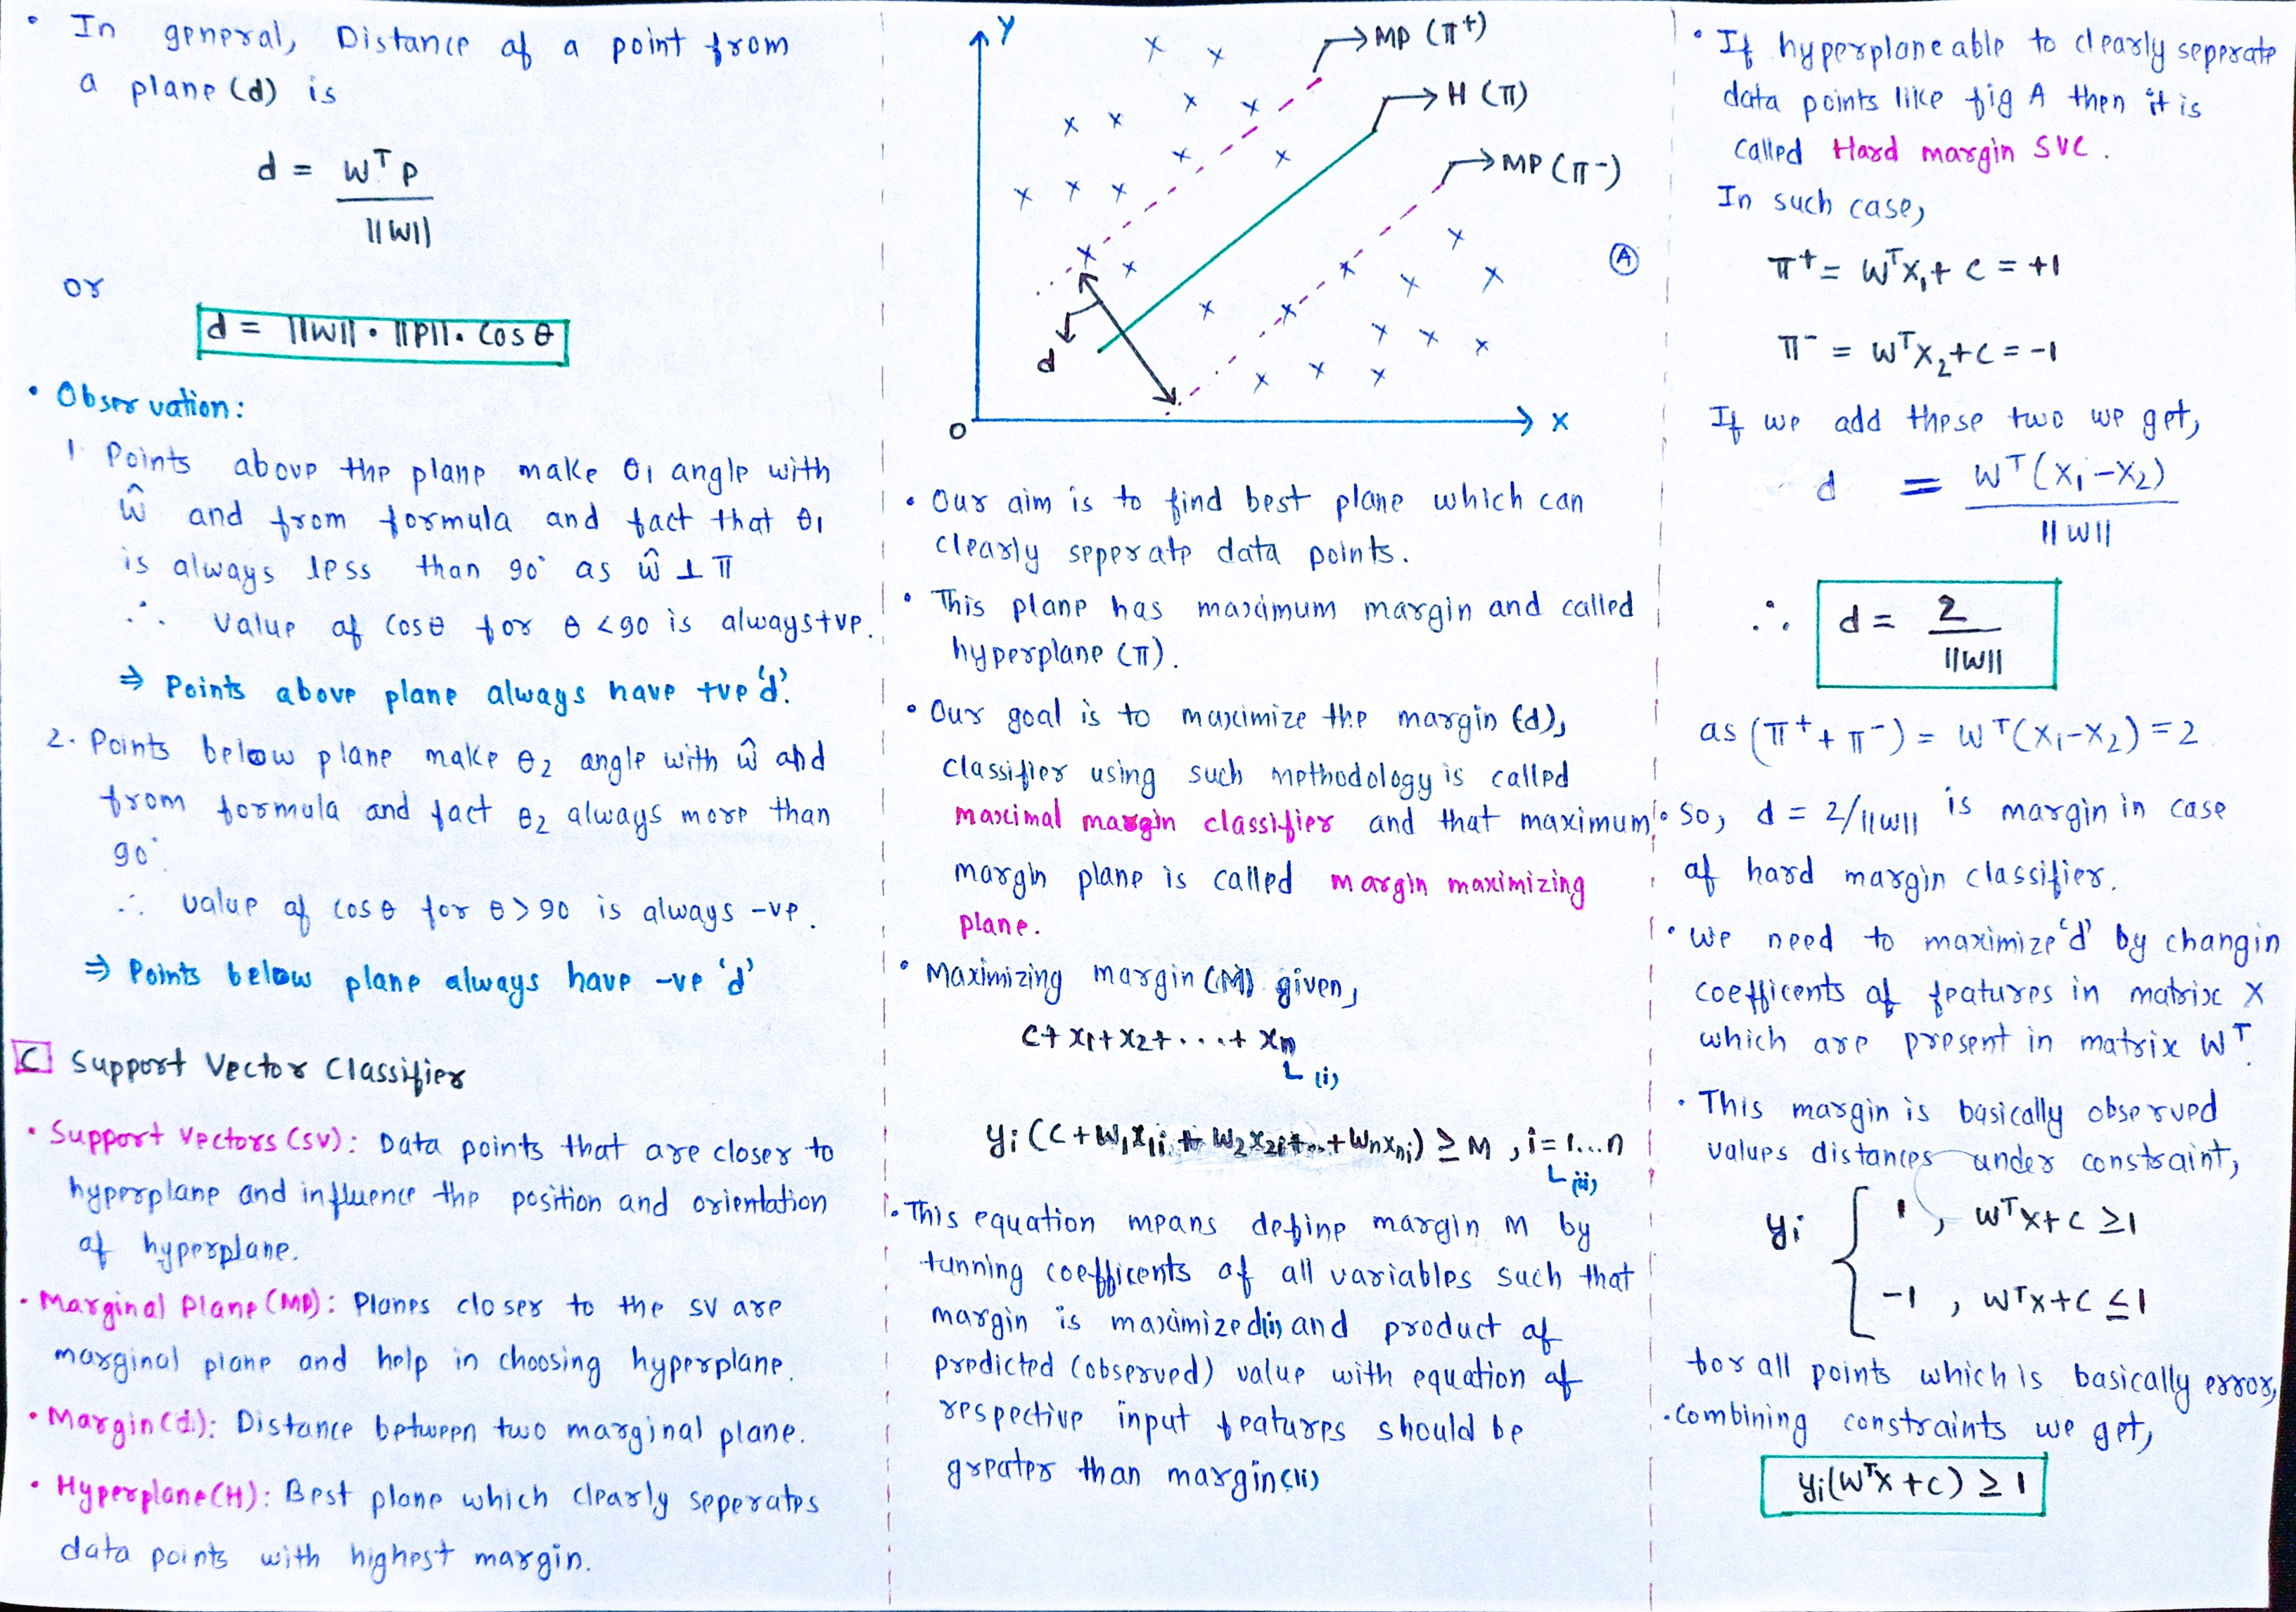 • In general, Distance of a point from
a plane (d) is
d = WᵀP
||W||
or
d = ||W|| • ||P||. cos θ
• Observation:
1. Points above the plane make θ₁ angle with
ŵ and from formula and fact that θ₁
is always less than 90° as ŵ ⊥ π
∴ value of cosθ for θ <90 is always +ve.
⇒ Points above plane always have +ve 'd'.
2. Points below plane make θ₂ angle with ŵ and
from formula and fact θ₂ always more than
90°.
∴ value of cosθ for θ>90 is always -ve.
⇒ Points below plane always have -ve 'd'
C Support Vector Classifier
• Support Vectors (SV): Data points that are closer to
hyperplane and influence the position and orientation
of hyperplane.
• Marginal Plane (MP): Planes closer to the SV are
marginal plane and help in choosing hyperplane.
• Margin(d): Distance between two marginal plane.
• Hyperplane(H): Best plane which clearly seperates
data points with highest margin.
Y
MP (π⁺)
H (π)
MP (π⁻)
A
d
O
X
• Our aim is to find best plane which can
clearly seperate data points.
• This plane has maximum margin and called
hyperplane (π).
• Our goal is to maximize the margin (d),
classifier using such methodology is called
maximal margin classifier and that maximum
margin plane is called margin maximizing
plane.
• Maximizing margin (M) given,
C+ x₁+x₂+....+ xₙ
(i)
yᵢ (C + W₁x₁ᵢ + W₂x₂ᵢ+..+Wₙxₙᵢ) ≥ M , i=1...n
(ii)
• This equation means define margin M by
tunning coefficents of all variables such that
margin is maximized(i) and product of
predicted (observed) value with equation of
respective input features should be
greater than margin(ii)
• If hyperplane able to clearly seperate
data points like fig A then it is
called Hard margin SVC.
In such case,
π⁺ = WᵀX₁+ C = +1
π⁻ = WᵀX₂+C = -1
If we add these two we get,
d = Wᵀ(X₁-X₂)
||W||
∴ d = 2
||W||
as (π⁺ + π⁻) = Wᵀ(X₁-X₂) = 2
• So, d = 2/||W|| is margin in case
of hard margin classifier.
• We need to maximize 'd' by changin
coefficents of features in matrix X
which are present in matrix Wᵀ.
• This margin is basically observed
values distances under constraint,
yᵢ { 1 , WᵀX+C ≥1
-1 , WᵀX+C ≤1
for all points which is basically error,
• Combining constraints we get,
yᵢ(WᵀX +C) ≥ 1